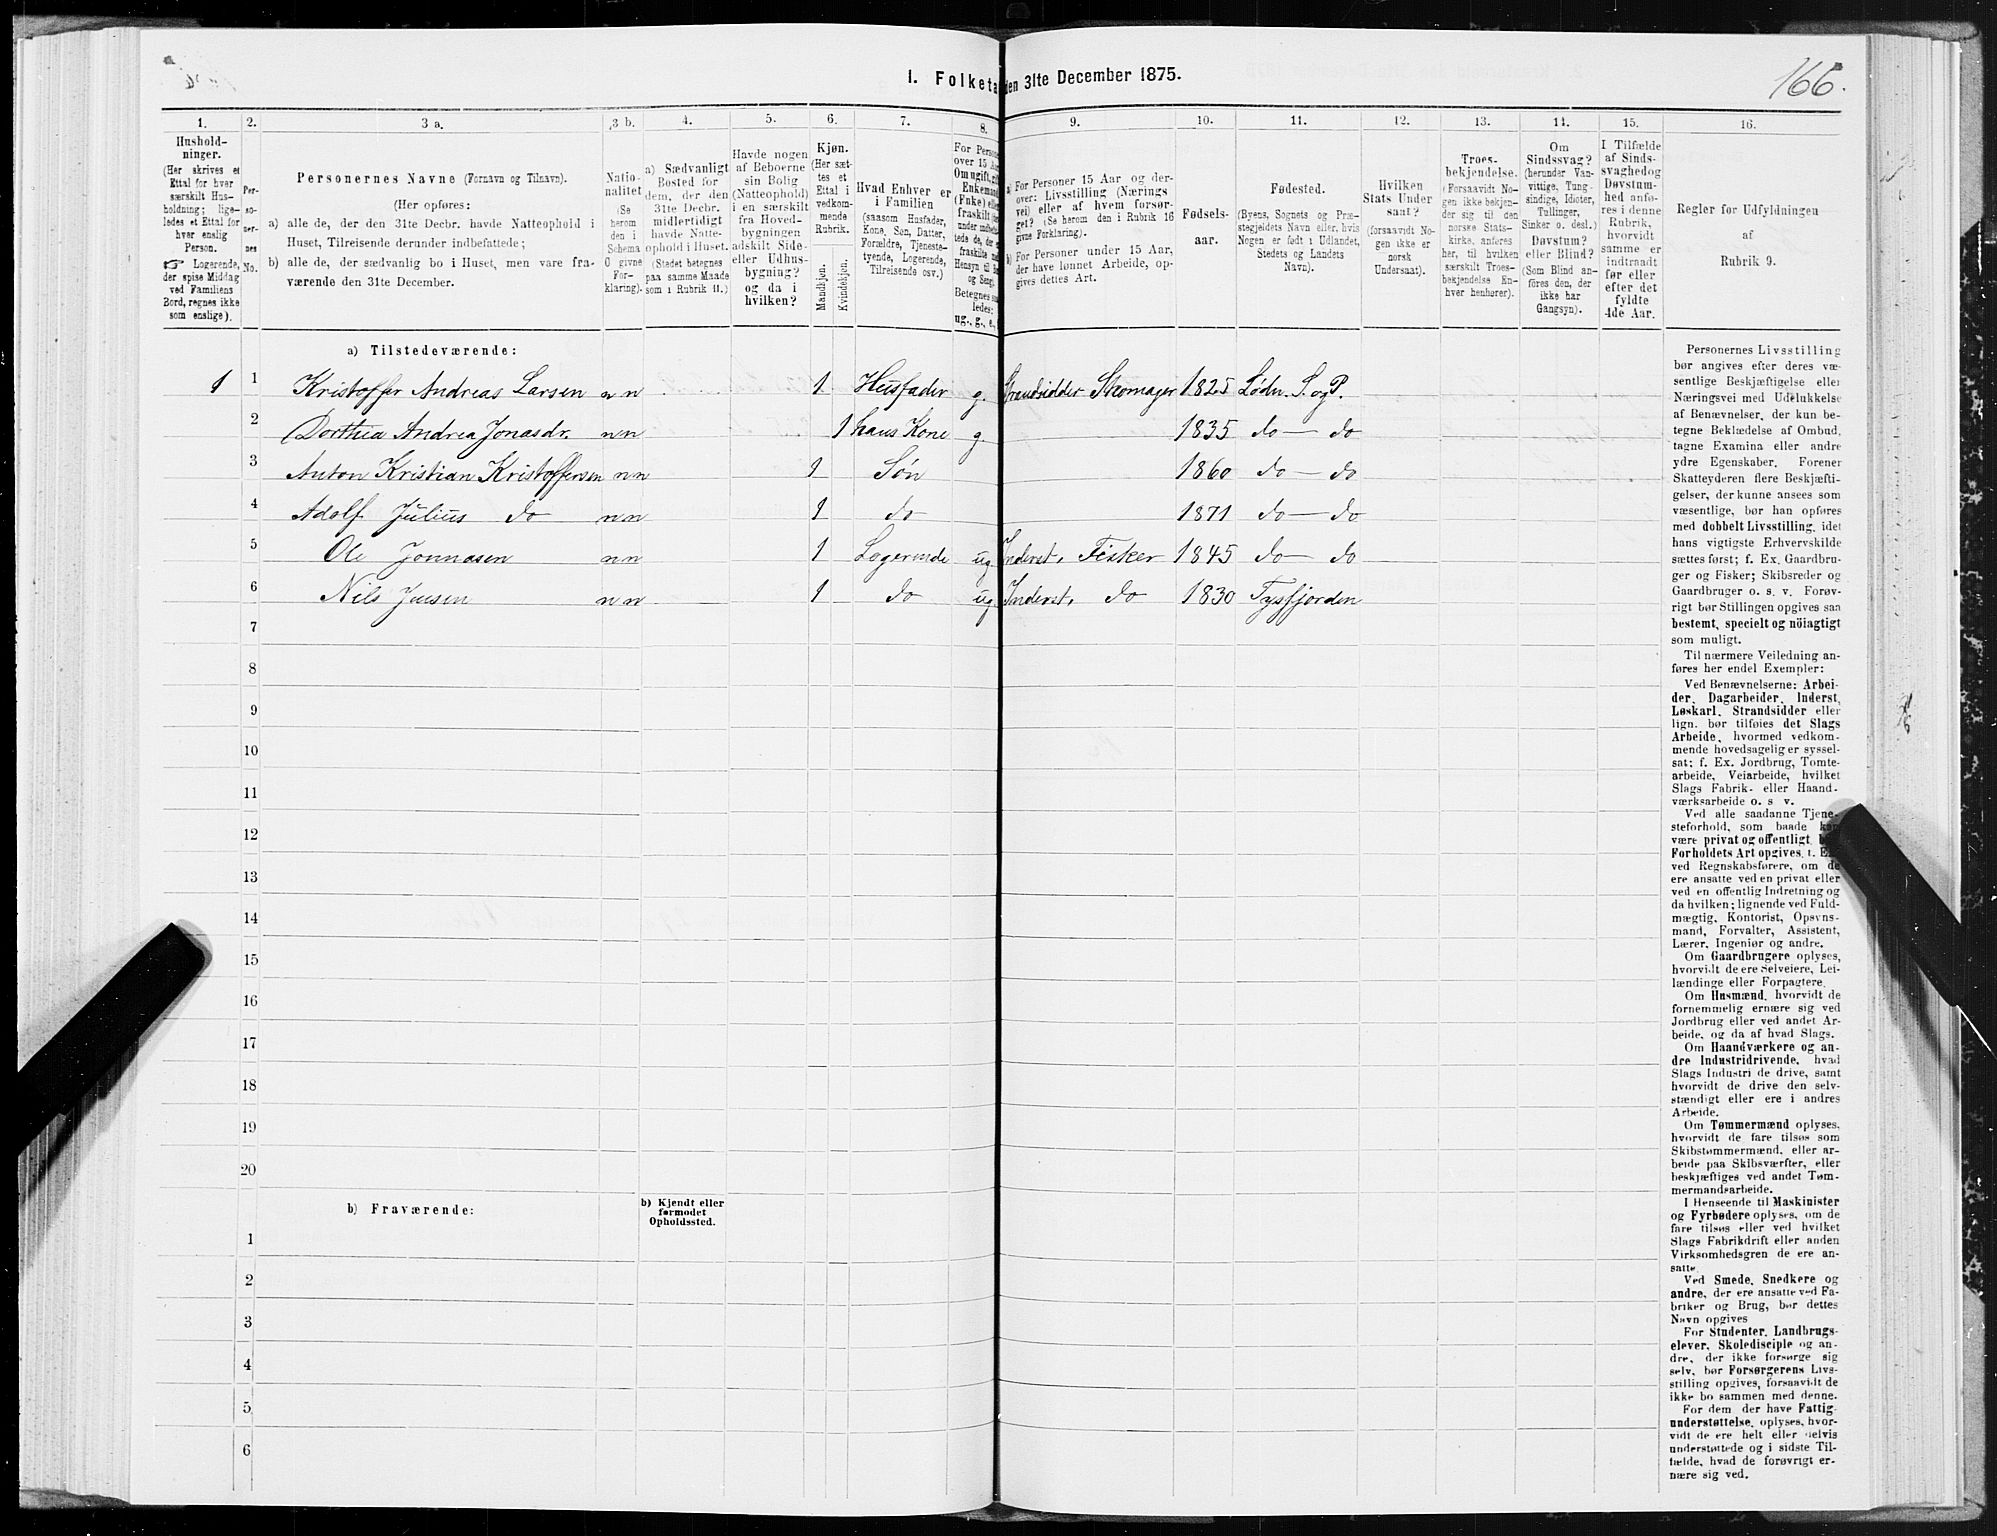 I. Folketa den 31te December 1875.
166.
1.
2.
3 a.
3 b.
4.
5.
6.
7.
8.
9.
10.
11.
12.
13.
14.
15.
16.
Hushold-
ninger.
(Her skrives et
Ettal for hver
særskilt Hus-
holdning; lige-
ledes et Ettal for
hver enslig
Person.
☞ Logerende,
der spise Middag
ved Familiens
Bord, regnes ikke
som enslige).
Per-
so-
ner-
nes
No.
Personernes Navne (Fornavn og Tilnavn).
(Her opføres:
a) alle de, der den 31te Decbr. havde Natteophold i
Huset, Tilreisende derunder indbefattede;
b) alle de, der sædvanlig bo i Huset, men vare fra-
værende den 31te December.
Natio-
nalitet
(Se
herom
den i
Schema
O givne
For-
klaring).
a) Sædvanligt
Bosted for
dem, der den
31te Decbr.
midlertidigt
havde Natte-
ophold i Huset.
(Stedet betegnes
paa samme Maade
som i Rubrik 11.)
Havde nogen
af Beboerne
sin Bolig
(Natteophold)
i en særskilt
fra Hoved-
bygningen
adskilt Side-
eller Udhus-
bygning?
og da i
hvilken?
Kjøn.
(Her sæt-
tes et
Ettal i
vedkom-
mende
Rubrik.
Mandkjøn.
Kvindekjøn.
Hvad Enhver er
i Familien
(saasom Husfader,
Kone, Søn, Datter,
Forældre, Tjeneste-
tyende, Logerende,
Tilreisende osv.)
For Person
over 15 Aa
Om ugift, gi
Enkemand
(Enke) elle
fraskilt
Betegnes saa
ledes:
ug., g., e.,
a) For Personer 15 Aar og der-
over: Livsstilling (Nærings
vei) eller af hvem forsør-
get? (Se herom den i Rubrik 16
givne Forklaring).
b) For Personer under 15 Aar,
der have lønnet Arbeide, op-
gives dettes Art.
Fødsels-
aar.
Fødested.
(Byens, Sognets og Præ-
stegjeldets Navn eller, hvis
Nogen er født i Udlandet,
Stedets og Landets
Navn).
Hvilken
Stats Under
saat?
(forsaavidt No-
gen ikke er
norsk
Undersaat).
Troes-
bekjendelse.
(Forsaavidt No-
gen ikke bekjen-
der sig til den
norske Stats-
kirke, anføres
her, til hvilken
særskilt Troes-
bekjendelse En-
hver henhører).
Om
Sindssvag?
(herunder Van-
vittige, Tung-
sindige, Idioter,
Tullinger,
Sinker o. desl.)
Døvstum?
eller Blind?
(Som Blind an-
føres den, der
ikke har
Gangsyn).
I Tilfælde
af Sinds-
svaghed og
Døvstum-
hed anfø-
res i denne
Rubrik,
hvorvidt
samme er
indtraadt
før eller
efter det
fyldte
4de Aar.
Regler for Udfyldningen
af
Rubrik 9.
a) Tilstedeværende:
1 1 Kristoffer Andreas Larsen n n 1 Husfader g. Strandsidder Skomager 1825 Lødn. S. og P.
2 Dorthea Andrea Jonasdr. n n 1 hans Kone g. 1835 do — do
3 Anton Kristian Kristoffersen n n 1 Søn 1860 do — do
4 Adolf Julius do n n 1 do 1871 do — do
5 Ole Jonnasen n n 1 Logerende ug. Inderst, Fisker 1845 do — do
6 Nils Jensen n n 1 do ug. Inderst, do 1830 Tysfjorden
7
8
9
10
11
12
13
14
15
16
17
18
19
20
b) Fraværende:
b) Kjendt eller
formodet
Opholdssted.
1
2
3
4
5
6
Personernes Livsstilling
bør angives efter deres væ-
sentlige Beskjæftigelse eller
Næringsvei med Udelukkelse
af Benævnelser, der kun be-
tegne Beklædelse af Ombud,
tagne Examina eller andre
ydre Egenskaber. Forener
Skatteyderen flere Beskjæfti-
gelser, der kunne ansees som
væsentlige, bør han opføres
med dobbelt Livsstilling, idet
hans vigtigste Erhvervskilde
sættes først; f. Ex. Gaardbru-
ger og Fisker; Skibsreder og
Gaardbruger o. s. v. Forøv-
rigt bør Stillingen opgives saa
bestemt, specielt og nöiagtigt
som muligt.
Til nærmere Veiledning an-
føres her endel Exempler:
Ved Benævnelserne: Arbei-
der, Dagarbeider, Inderst,
Løskarl, Strandsidder eller
lign. bør tilføies det Slags
Arbeide, hvormed vedkom-
mende hovedsagelig er syssel-
sat; f. Ex. Jordbrug, Tomte-
arbeide, Veiarbeide, hvilket
Slags Fabrik- eller Haand-
værksarbeide o. s. v.
Ved alle saadanne Tjene-
steforhold, som baade kan
være privat og offentligt, bør
Forholdets Art opgives, f. Ex.
ved Regnskabsførere, om de
ere ansatte ved en privat eller
ved en offentlig Indretning og
da hvilken; lignende ved Fuld-
mægtig, Kontorist, Opsyns-
mand, Forvalter, Assistent,
Lærer, Ingeniør og andre.
Om Gaardbrugere oplyses,
hvorvidt de ere Selveiere, Lei-
lændinge eller Forpagtere.
Om Husmænd, hvorvidt de
fornemmelig ernære sig ved
Jordbrug eller ved andet Ar-
beide, og da af hvad Slags.
Om Haandværkere og an-
dre Industridrivende, hvad
Slags Industri de drive, samt
hvorvidt de drive den selv-
stændigt eller ere i andres
Arbeide.
Om Tømmermænd oplyses,
hvorvidt de fare tilsøs som
Skibstømmermænd, eller ar-
beide paa Skibsværfter, eller
beskjæftiges ved andet Tøm-
mermandsarbeide.
I Henseende til Maskinister
og Fyrbødere oplyses, om de
fare tilsøs eller ved hvilket
Slags Fabrikdrift eller anden
Virksomhedsgren de ere an-
satte.
Ved Smede, Snedkere og
andre, der ere ansatte ved Fa-
briker og Brug, bør dettes
Navn opgives
For Studenter, Landbrugs-
elever, Skoledisciple og an-
dre, der ikke forsørge sig
selv, bør Forsørgerens Livs-
stilling opgives, forsaavidt de
ikke bo sammen med denne.
For dem, der have Fattig-
understøttelse, oplyses, hvor-
vidt de ere helt eller delvis
understøttede og i sidste Til-
fælde, hvad de forøvrigt er-
nære sig ved.